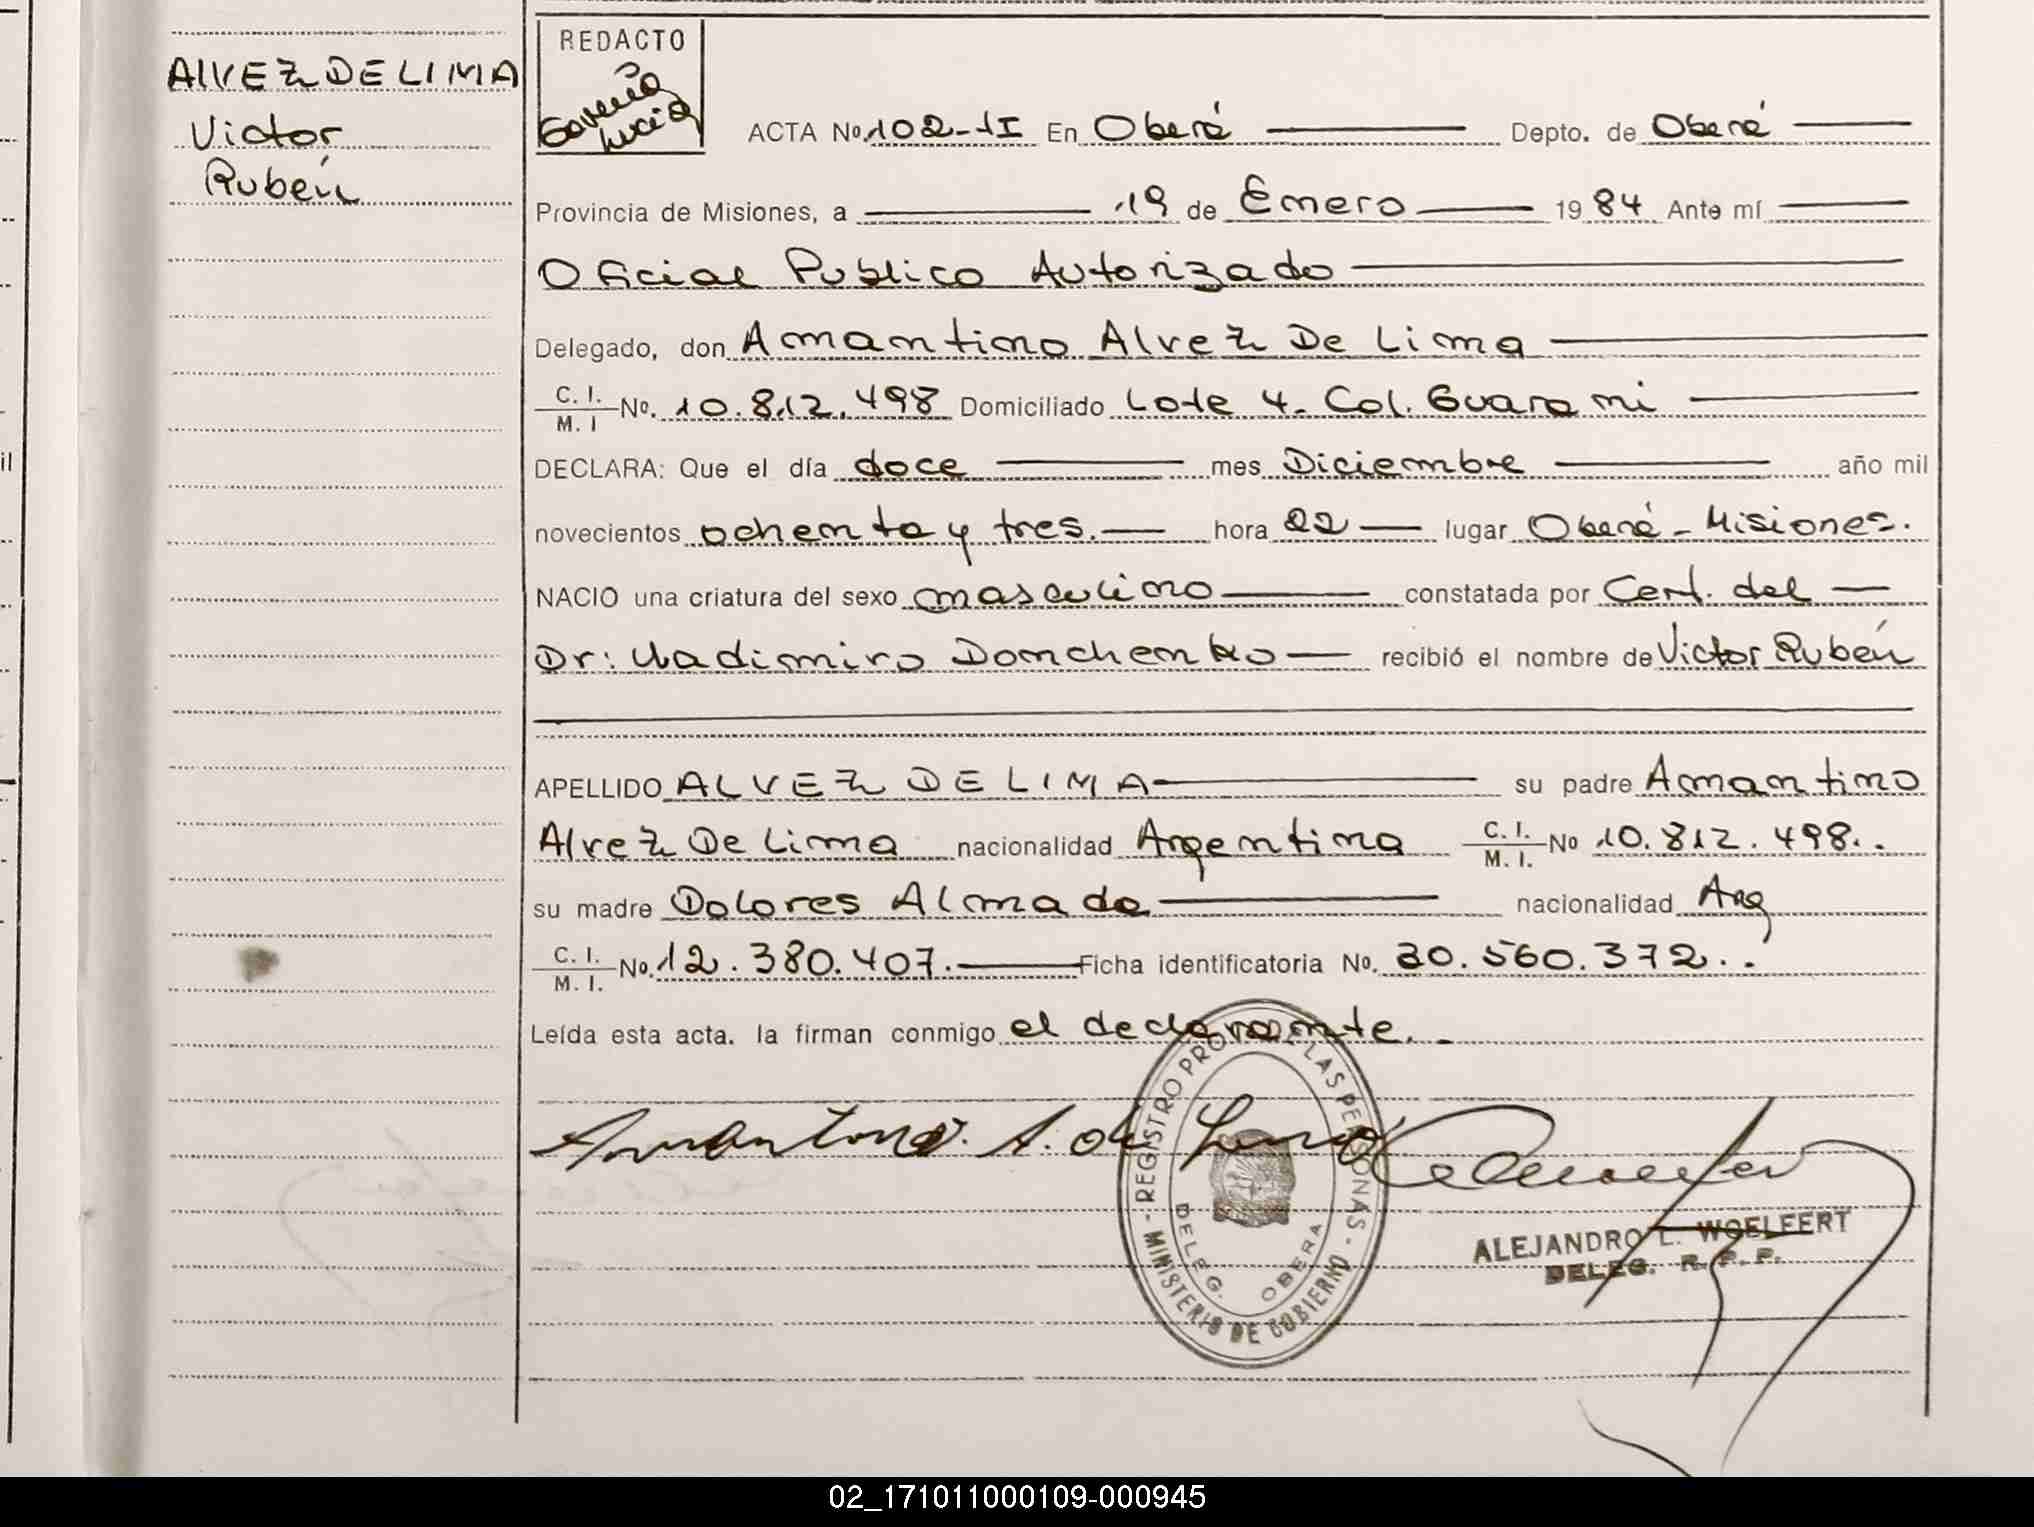 ALVEZ DE LIMA
Victor
Rubén
REDACTO
Lucia
ACTA No. 102-II En Oberá Depto. de Oberá
Provincia de Misiones, a 19 de Enero 1984 Ante mí
Oficial Publico Autorizado
Delegado, don Amantino Alvez De Lima
C. I. / M. I No. 10.812.498 Domiciliado Lote 4. Col. Guarani
DECLARA: Que el día doce mes Diciembre año mil
novecientos ochenta y tres. hora 22 lugar Oberá - Misiones.
NACIO una criatura del sexo masculino constatada por Cert. del
Dr: Vladimiro Domchemko recibió el nombre de Victor Rubén
APELLIDO ALVEZ DE LIMA su padre Amantino
Alvez De Lima nacionalidad Argentina C. I. / M. I. No 10.812.498..
su madre Dolores Almada nacionalidad Arg
C. I. / M. I. No. 12.380.407. Ficha identificatoria No. 30.560.372..
Leída esta acta. la firman conmigo el declarante.
Amantino A. de Lima
REGISTRO PROV. DE LAS PERSONAS - MINISTERIO DE GOBIERNO
DELEG. OBERA
ALEJANDRO L. WOELFERT
DELEG. R. P. P.
02_171011000109-000945